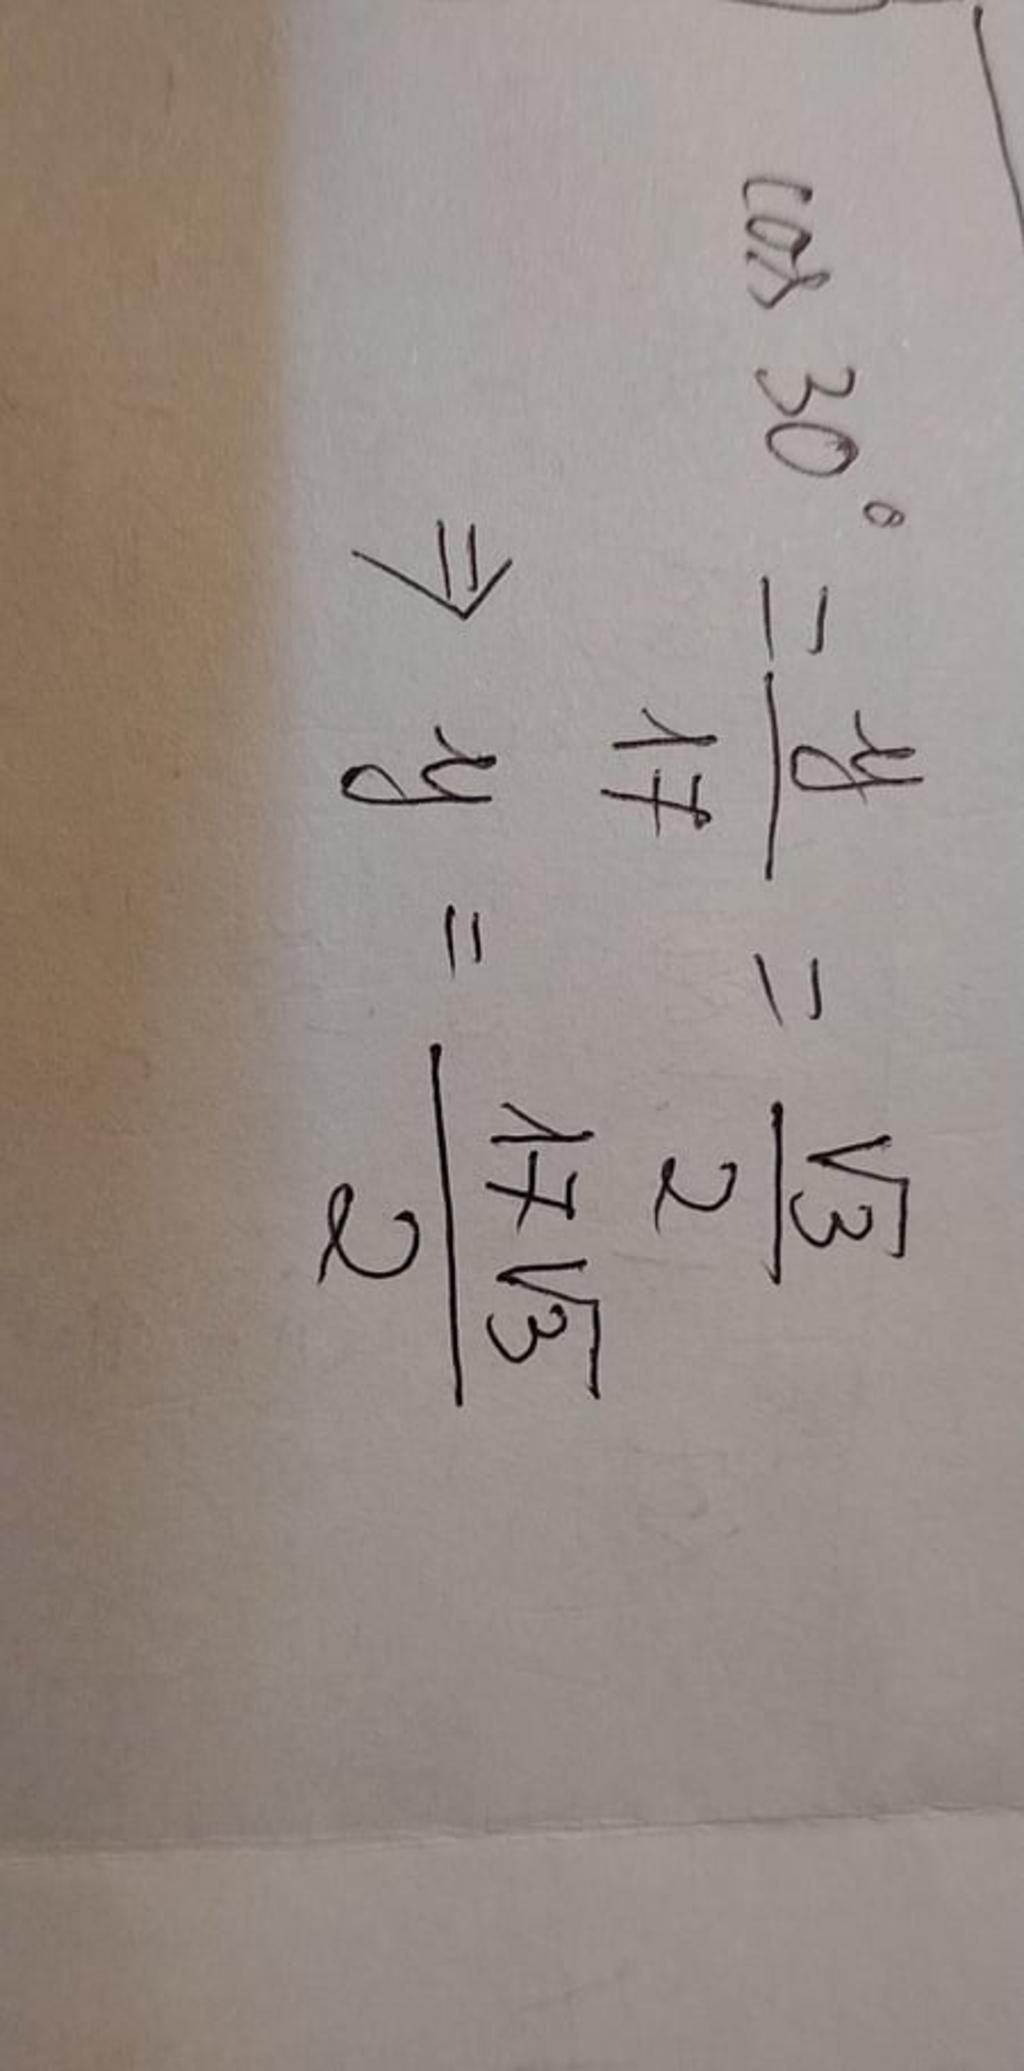 cos 30° = y/17 = √3/2
⇒ y = 17√3/2